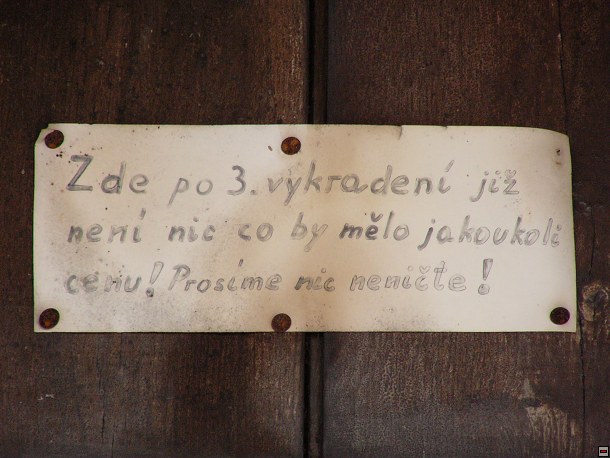 Zde po 3. vykradení již
není nic co by mělo jakoukoli
cenu! Prosíme nic neničte!